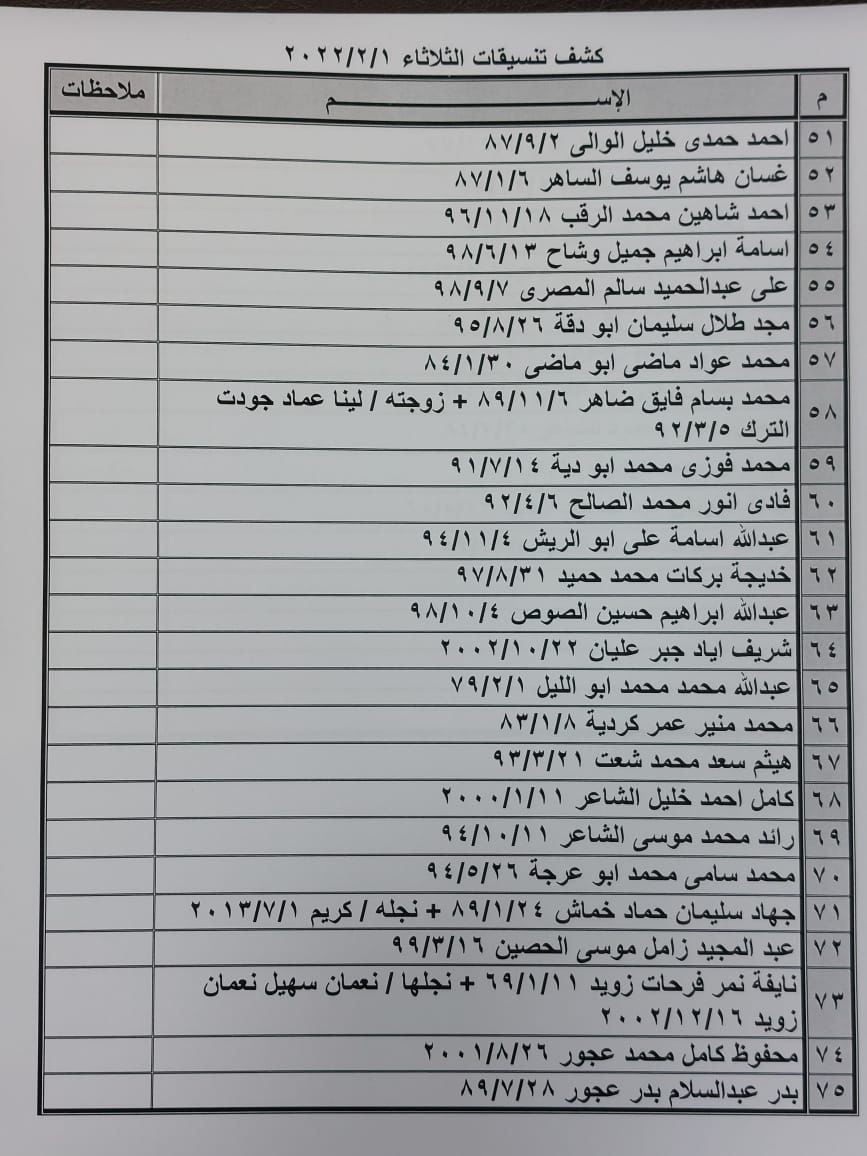 كشف تنسيقات الثلاثاء ٢٠٢٢/٢/١
م الإســـــــــم ملاحظات
٥١ احمد حمدى خليل الوالى ٨٧/٩/٢
٥٢ غسان هاشم يوسف الساهر ٨٧/١/٦
٥٣ احمد شاهين محمد الرقب ٩٦/١١/١٨
٥٤ اسامة ابراهيم جميل وشاح ٩٨/٦/١٣
٥٥ على عبدالحميد سالم المصرى ٩٨/٩/٧
٥٦ مجد طلال سليمان ابو دقة ٩٥/٨/٢٦
٥٧ محمد عواد ماضى ابو ماضى ٨٤/١/٣٠
٥٨ محمد بسام فايق ضاهر ٨٩/١١/٦ + زوجته / لينا عماد جودت
الترك ٩٢/٣/٥
٥٩ محمد فوزى محمد ابو دية ٩١/٧/١٤
٦٠ فادى انور محمد الصالح ٩٢/٤/٦
٦١ عبدالله اسامة على ابو الريش ٩٤/١١/٤
٦٢ خديجة بركات محمد حميد ٩٧/٨/٣١
٦٣ عبدالله ابراهيم حسين الصوص ٩٨/١٠/٤
٦٤ شريف اياد جبر عليان ٢٠٠٢/١٠/٢٢
٦٥ عبدالله محمد محمد ابو الليل ٧٩/٢/١
٦٦ محمد منير عمر كردية ٨٣/١/٨
٦٧ هيثم سعد محمد شعت ٩٣/٣/٢١
٦٨ كامل احمد خليل الشاعر ٢٠٠٠/١/١١
٦٩ رائد محمد موسى الشاعر ٩٤/١٠/١١
٧٠ محمد سامى محمد ابو عرجة ٩٤/٥/٢٦
٧١ جهاد سليمان حماد خماش ٨٩/١/٢٤ + نجله / كريم ٢٠١٣/٧/١
٧٢ عبد المجيد زامل موسى الحصين ٩٩/٣/١٦
٧٣ نايفة نمر فرحات زويد ٦٩/١/١١ + نجلها / نعمان سهيل نعمان
زويد ٢٠٠٢/١٢/١٦
٧٤ محفوظ كامل محمد عجور ٢٠٠١/٨/٢٦
٧٥ بدر عبدالسلام بدر عجور ٨٩/٧/٢٨